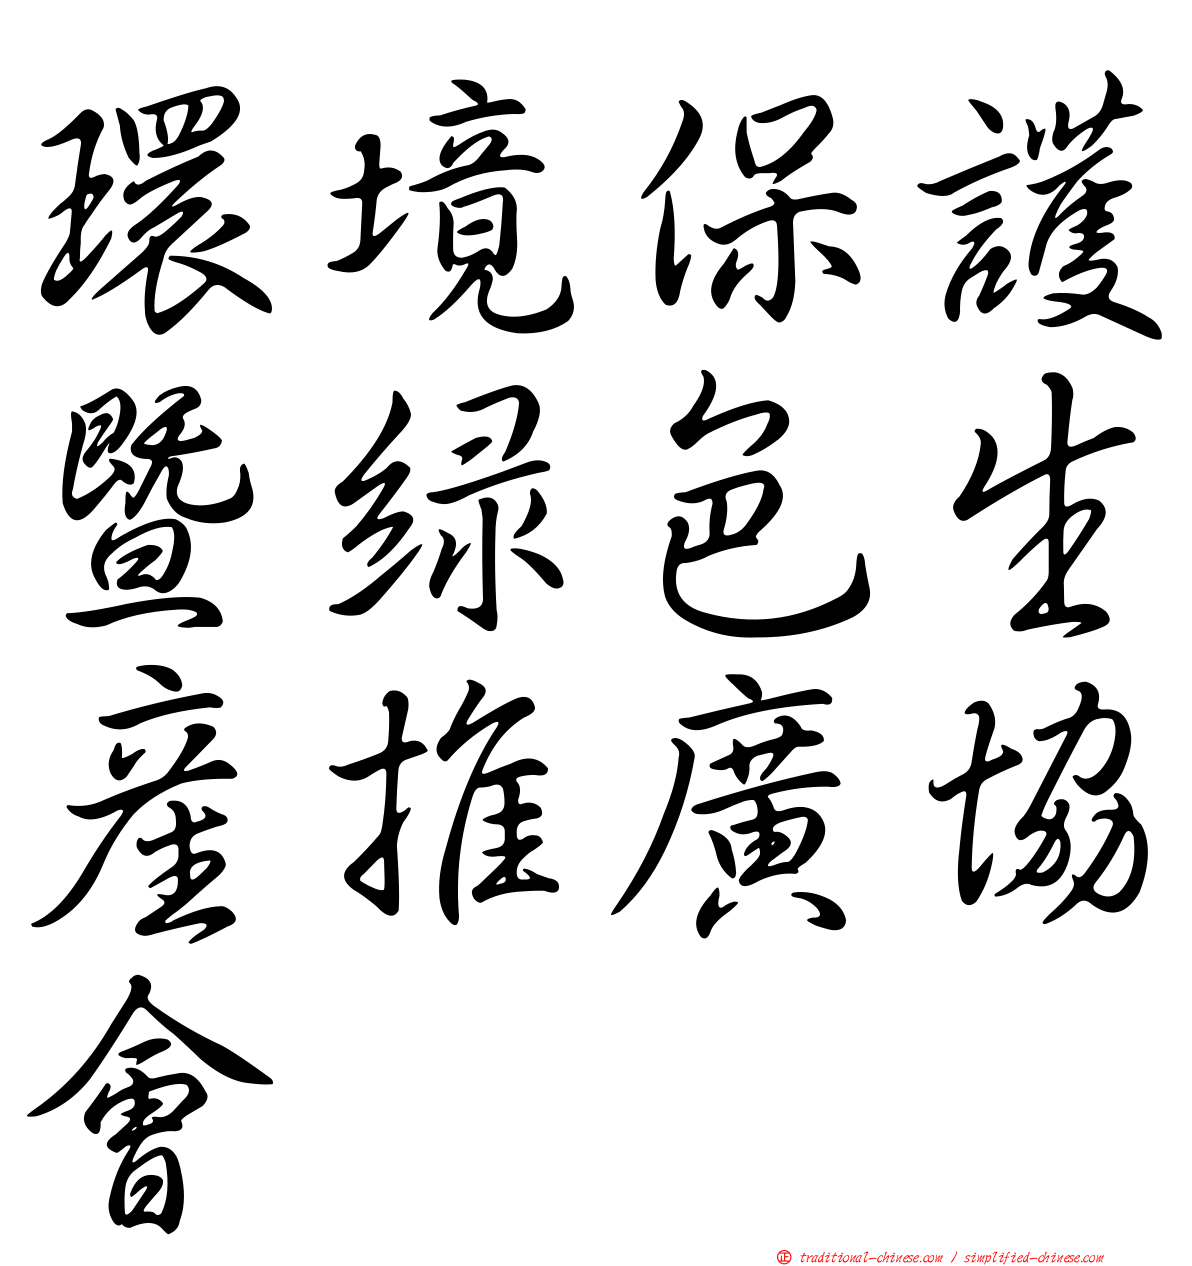 環境保護
暨綠色生
產推廣協
會
㊣ traditional-chinese.com / simplified-chinese.com